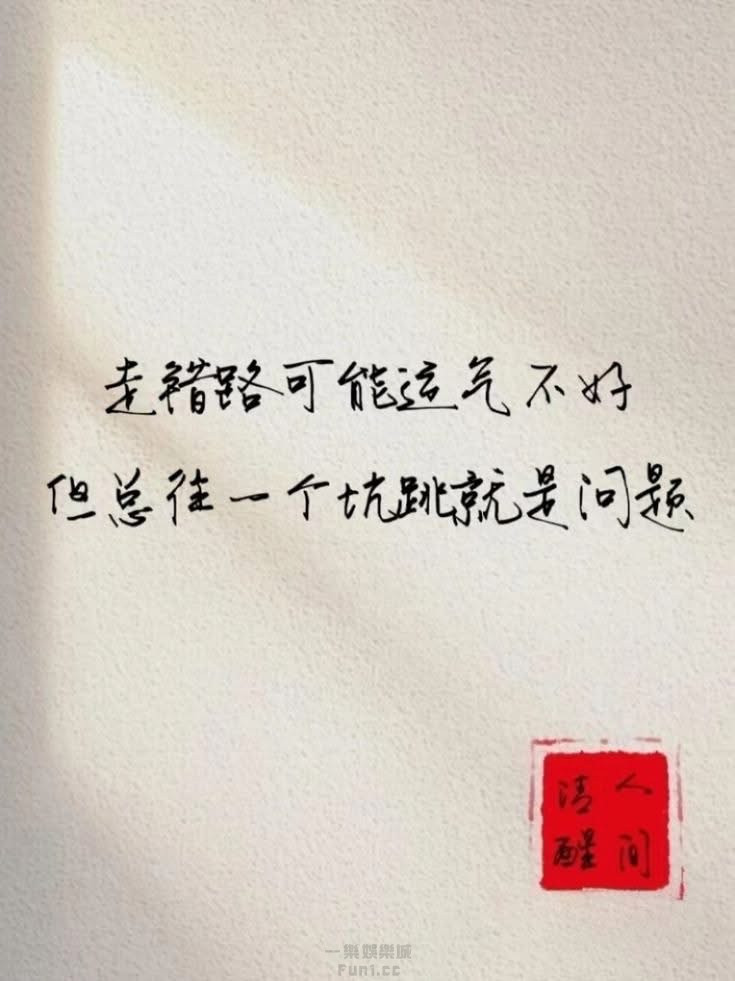 走错路可能运气不好
但总往一个坑跳就是问题
人间
清醒
一樂娛樂城
Fun1.cc